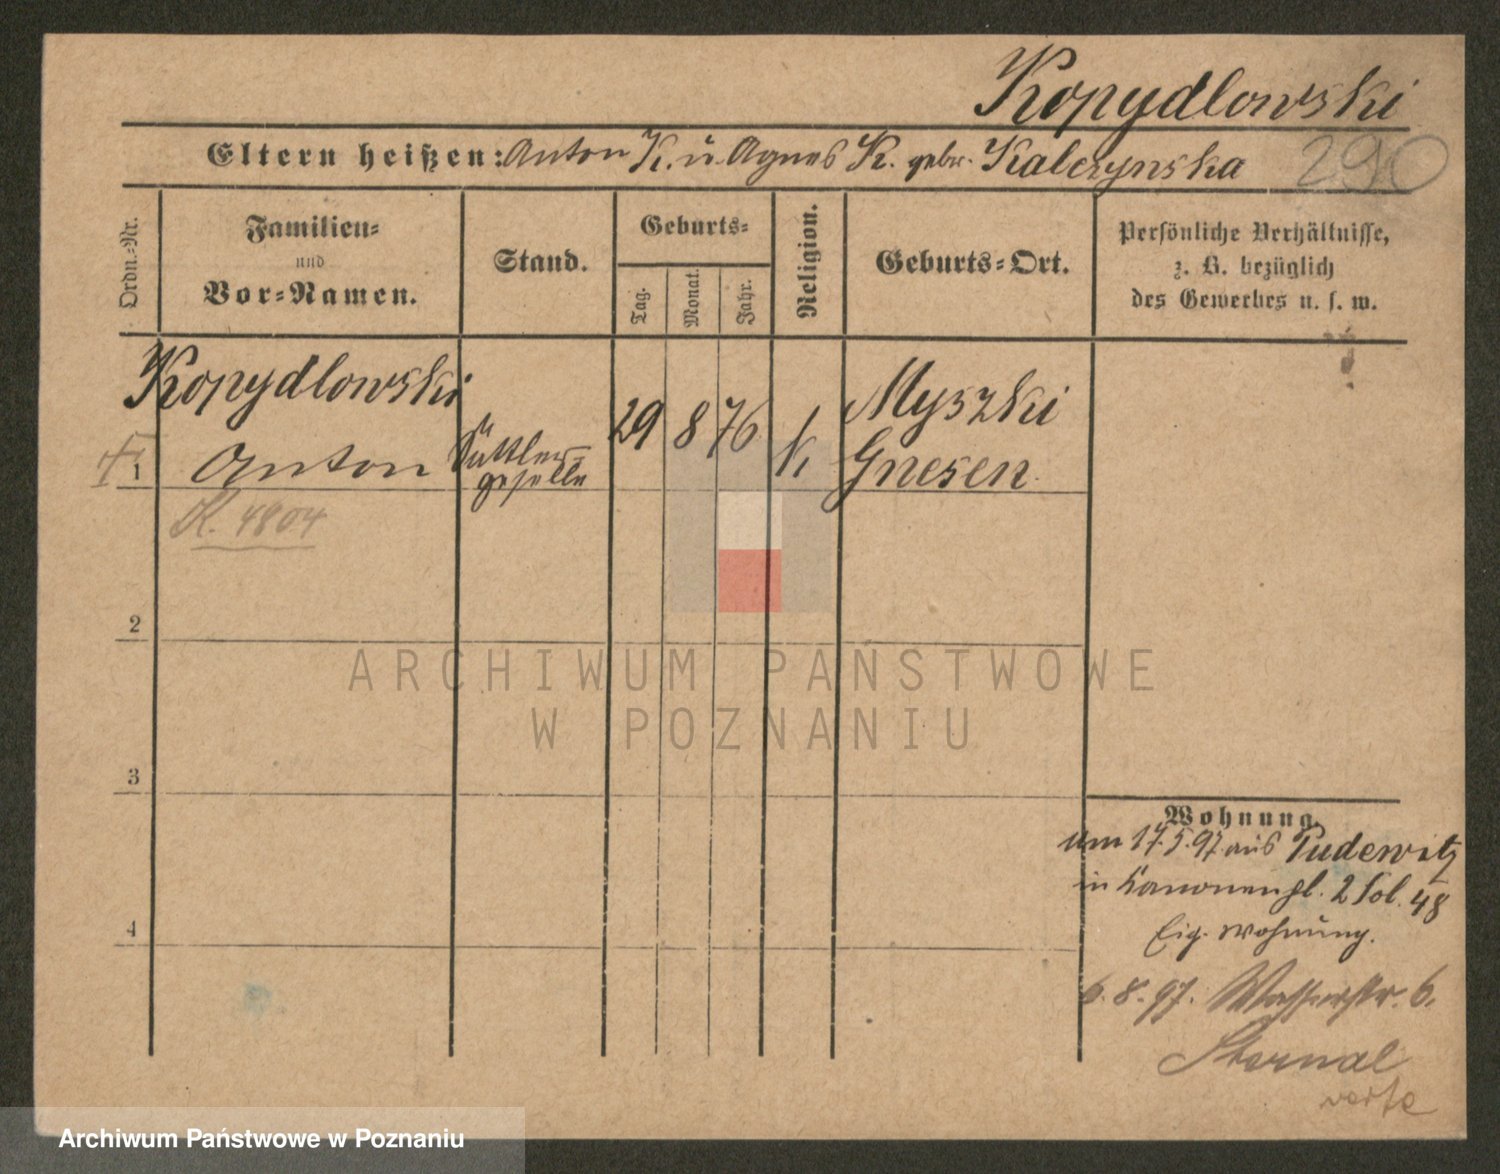 Kopydlowski
Eltern heißen: Anton K. u. Agnes K. gebr. Kalczynska 290
Ordn.-Nr.
Familien-
und
Vor-Namen.
Stand.
Geburts-
Tag.
Monat.
Jahr.
Religion.
Geburts-Ort.
Persönliche Verhältnisse,
z. B. bezüglich
des Gewerbes u. s. w.
Kopydlowski
1 Anton
Sattler-
geselle
29 8 76
k
Myszki
Gnesen
K. 4804
2
3
4
Wohnung.
um 17.5.97. aus Pudewitz
in Kanonenpl. 2 Sol. 48
Eig. Wohnung.
6.8.97. Wasserstr. 6.
Sternal
verte
ARCHIWUM PAŃSTWOWE
W POZNANIU
Archiwum Państwowe w Poznaniu